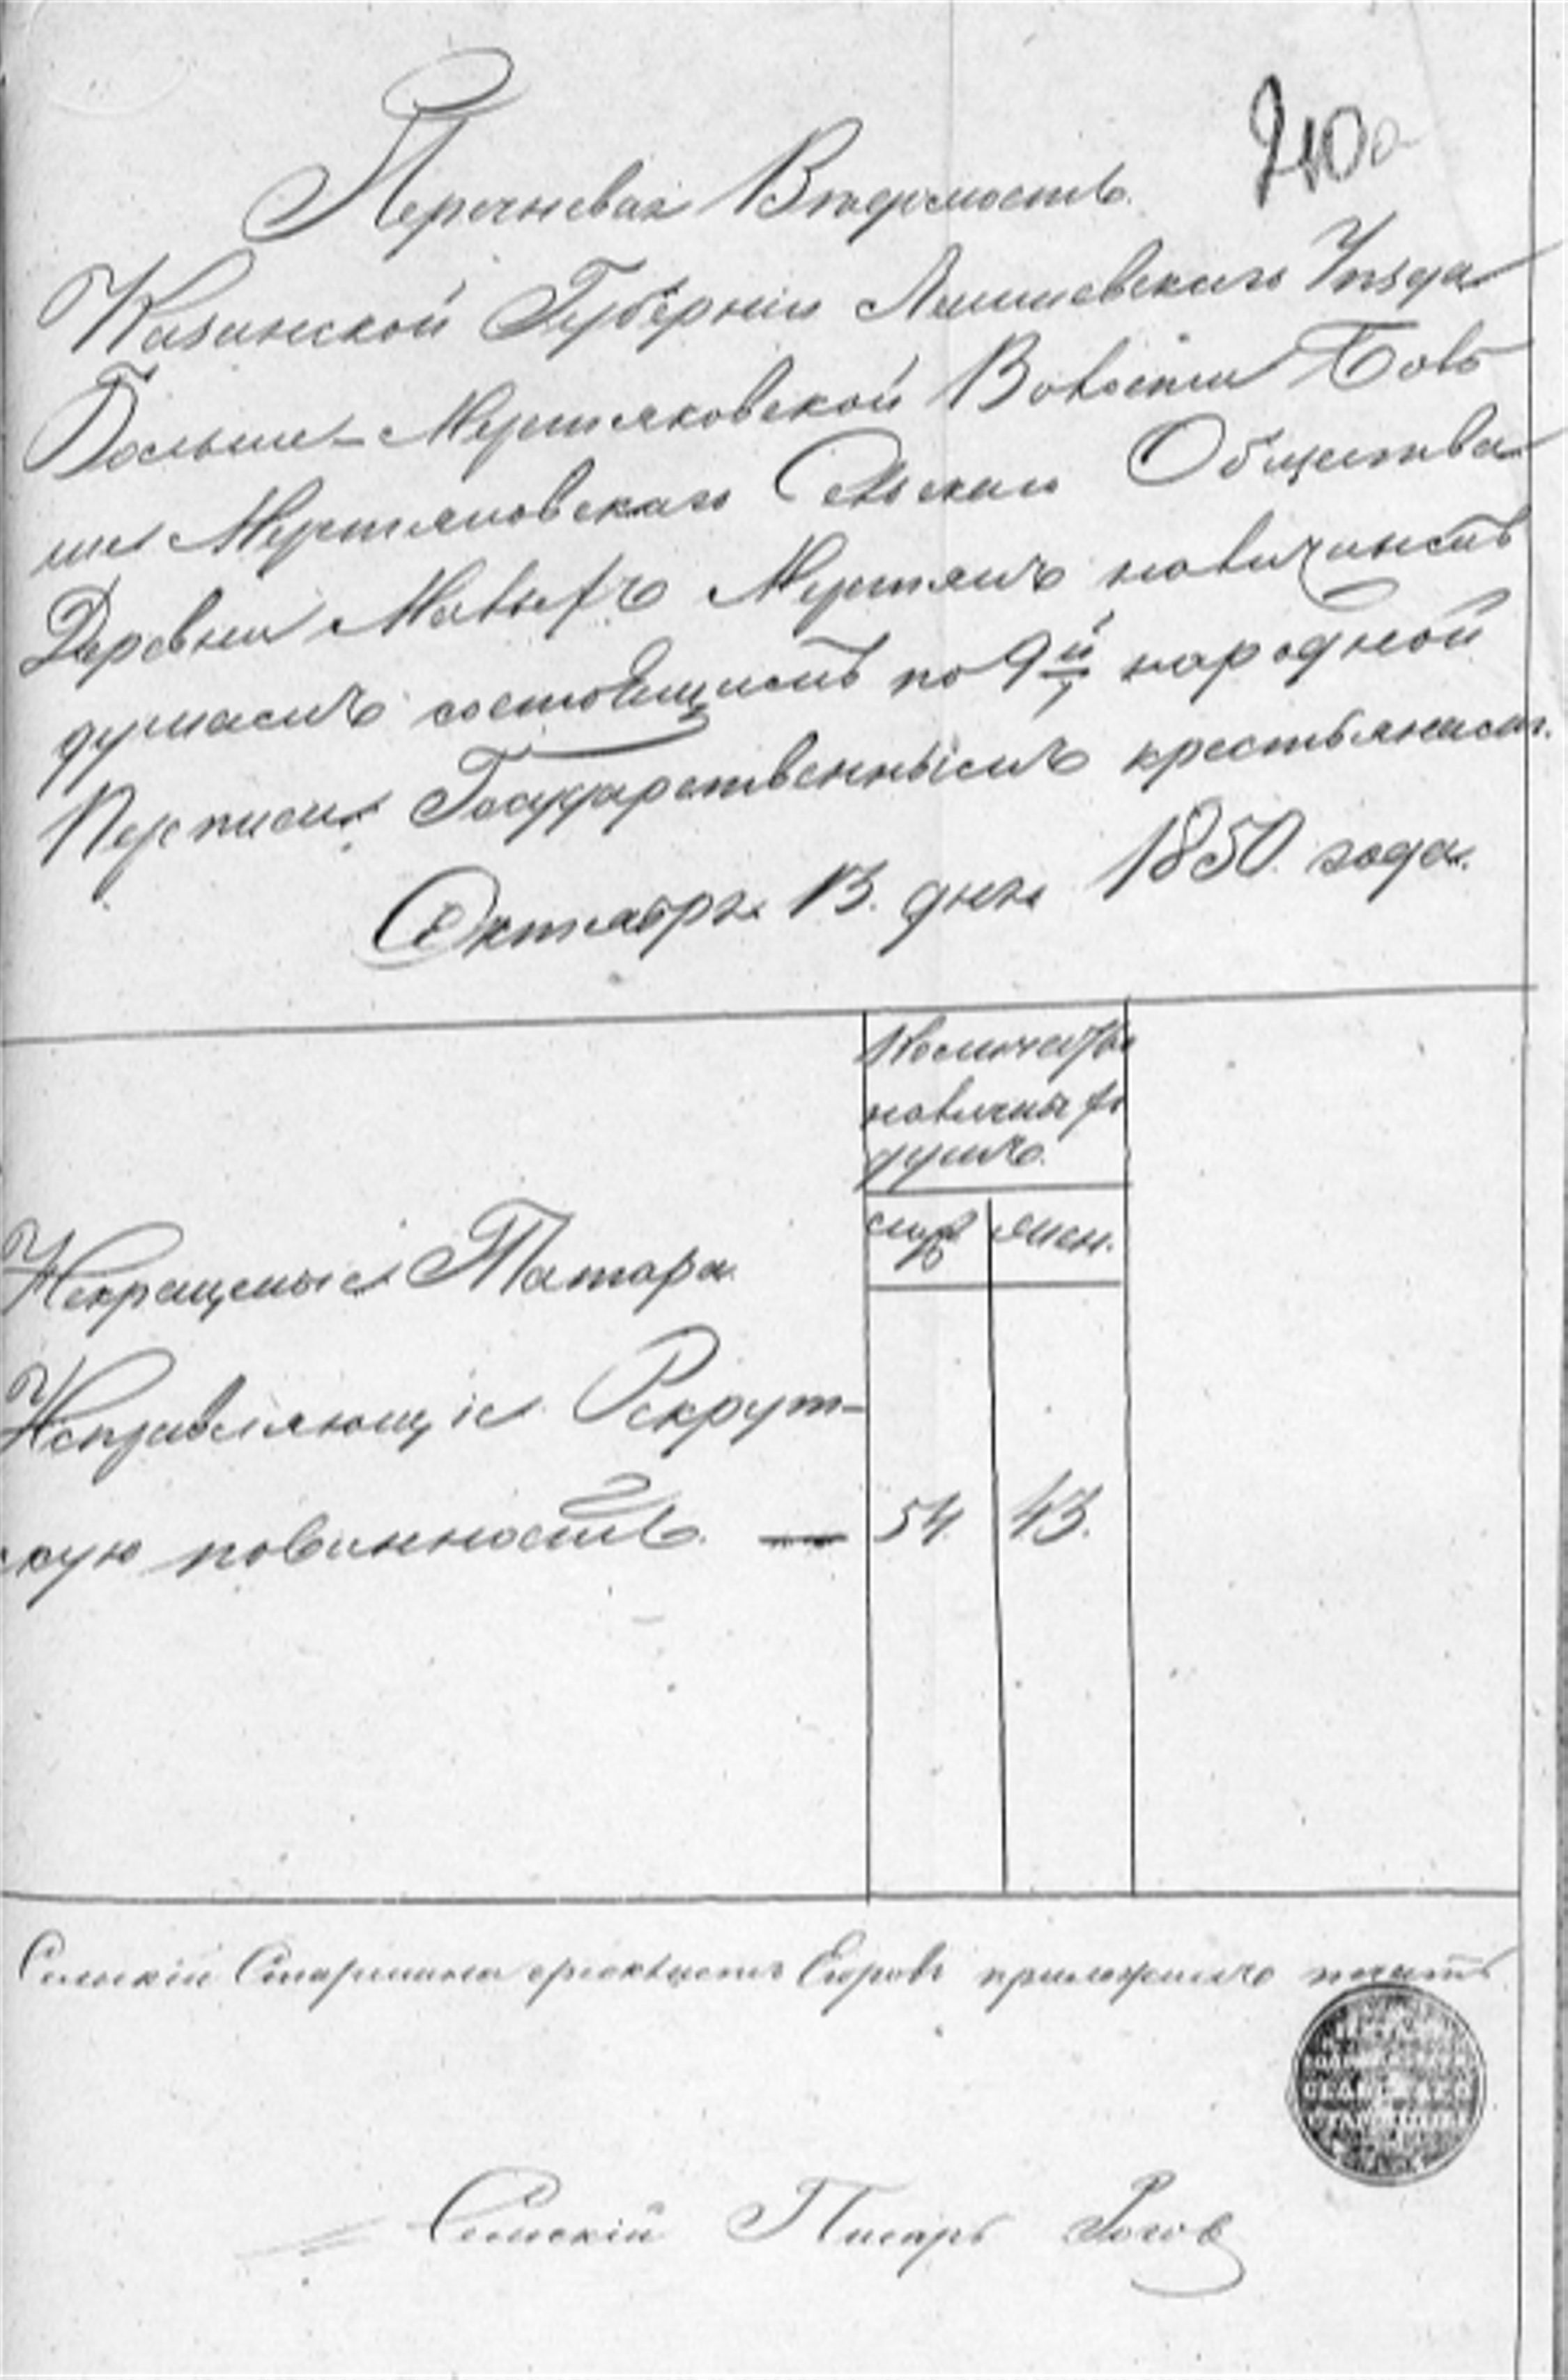 240
Перечневая Вѣдомость.
Казанской Губерніи Лаишевскаго Уѣзда
Больше-Меретяковской Волости Боль
ше Меретяковскаго Сельскаго Общества
Деревни Малыхъ Меретякъ наличнымъ
душамъ состоящимъ по 9й народной
Переписи Государственнымъ крестьянамъ.
Октября 13. дня 1850. года.
Количество
наличныхъ
душъ.
муж. жен.
Некрещеные Татара
Исправляющіе Рекрут-
скую повинность. — 54. 43.
Сельскій Старшина Егоровъ приложилъ печать
СЕЛЬСКАГО
СТАРШИНЫ
Сельскій Писарь